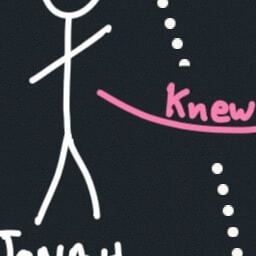 Knew
JONAH